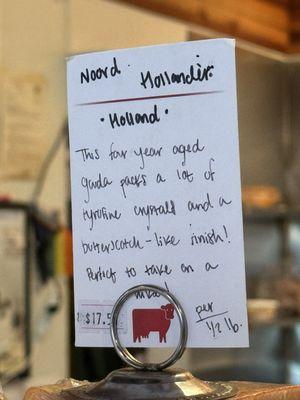 Noord Hollander
• Holland •
This four year aged
gouda packs a lot of
tyrosine crystals and a
butterscotch-like finish!
Perfect to take on a
$17.5
per
1/2 lb.